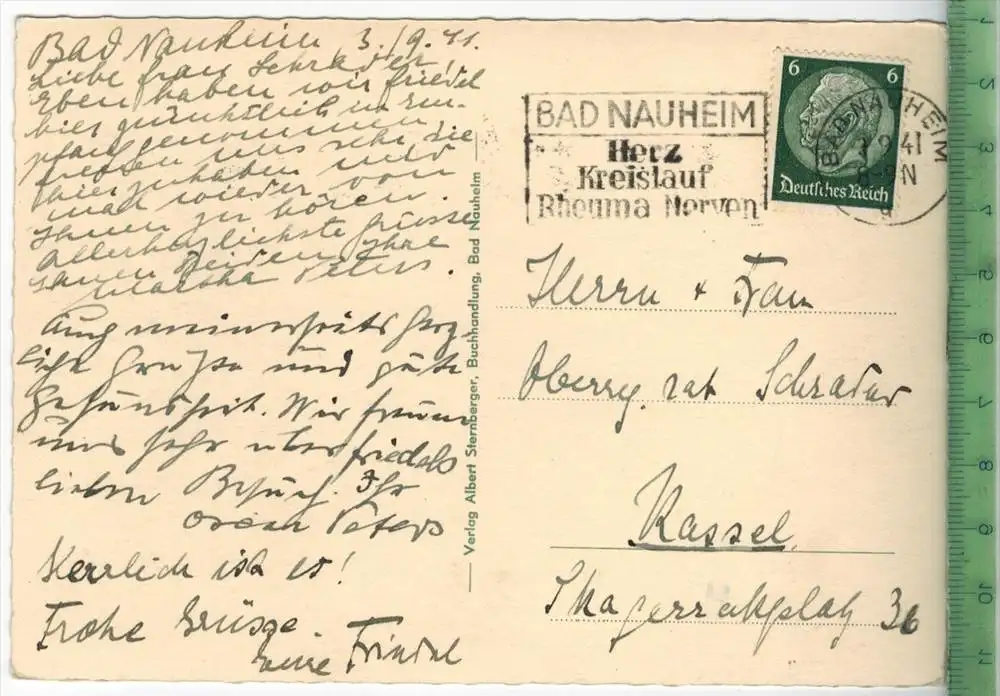 Bad Nauheim, 3./9.41.
Liebe Frau Schrader!
Eben haben wir Friedel
hier glücklich in Em-
pfang genommen,
freuen uns sehr, sie
hier zu haben und
mal wieder von
Ihnen zu hören.
Allerherzlichste Grüsse
Ihnen Beiden Ihre
Martha Peters.
Auch meinerseits herz-
liche Grüße und gute
Gesundheit. Wir freuen
uns sehr über Friedels
lieben Besuch. Ihr
Oscar Peters
Herrlich ist es!
Frohe Grüsse.
Eure Friedel
Verlag Albert Sternberger, Buchhandlung, Bad Nauheim
BAD NAUHEIM
Herz
Kreislauf
Rheuma Nerven
6 6
Deutsches Reich
BAD NAUHEIM
9.41
8-9N
g
Herrn + Frau
Oberreg. rat Schrader
Kassel.
Skagerrakplatz 36
1
5
3
2
6
7
8
9
10
11